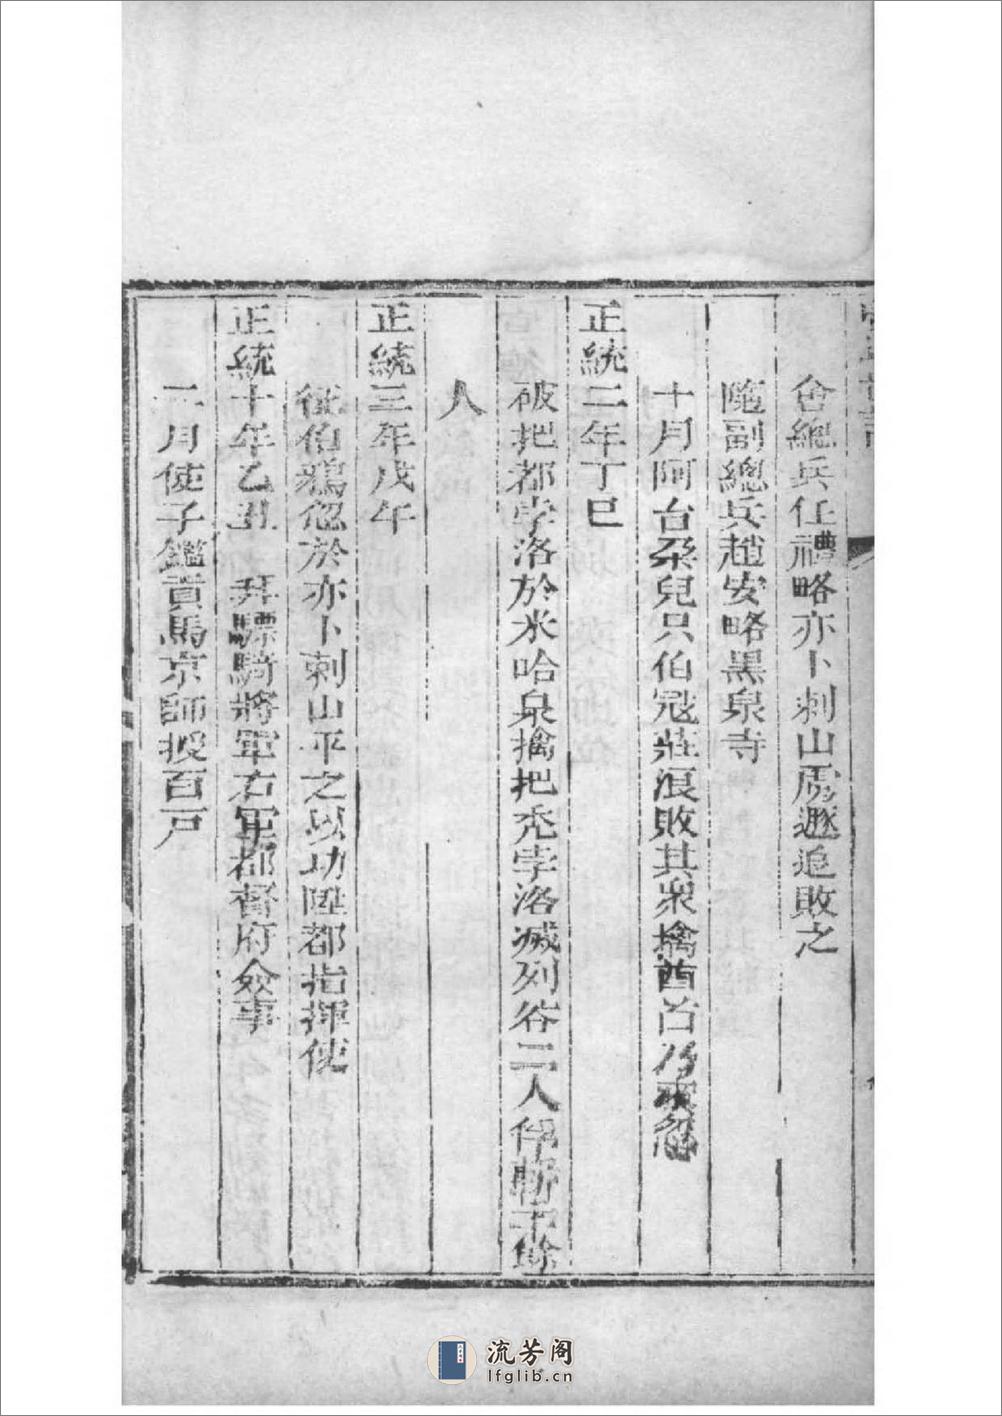 會總兵任禮略亦卜剌山虜遯追敗之
隨副總兵趙安略黑泉寺
十月阿台朶兒只伯寇莊浪敗其衆擒酋首
正統二年丁巳
破把都孛洛於米哈泉擒把禿孛洛滅列谷二人俘斬千餘
人
正統三年戊午
從伯鴉偬於亦卜剌山平之以功陞都指揮使
正統十年乙丑 拜驃騎將軍右軍都督府僉事
二月使子鑑貢馬京師授百戶
流芳阁
lfglib.cn